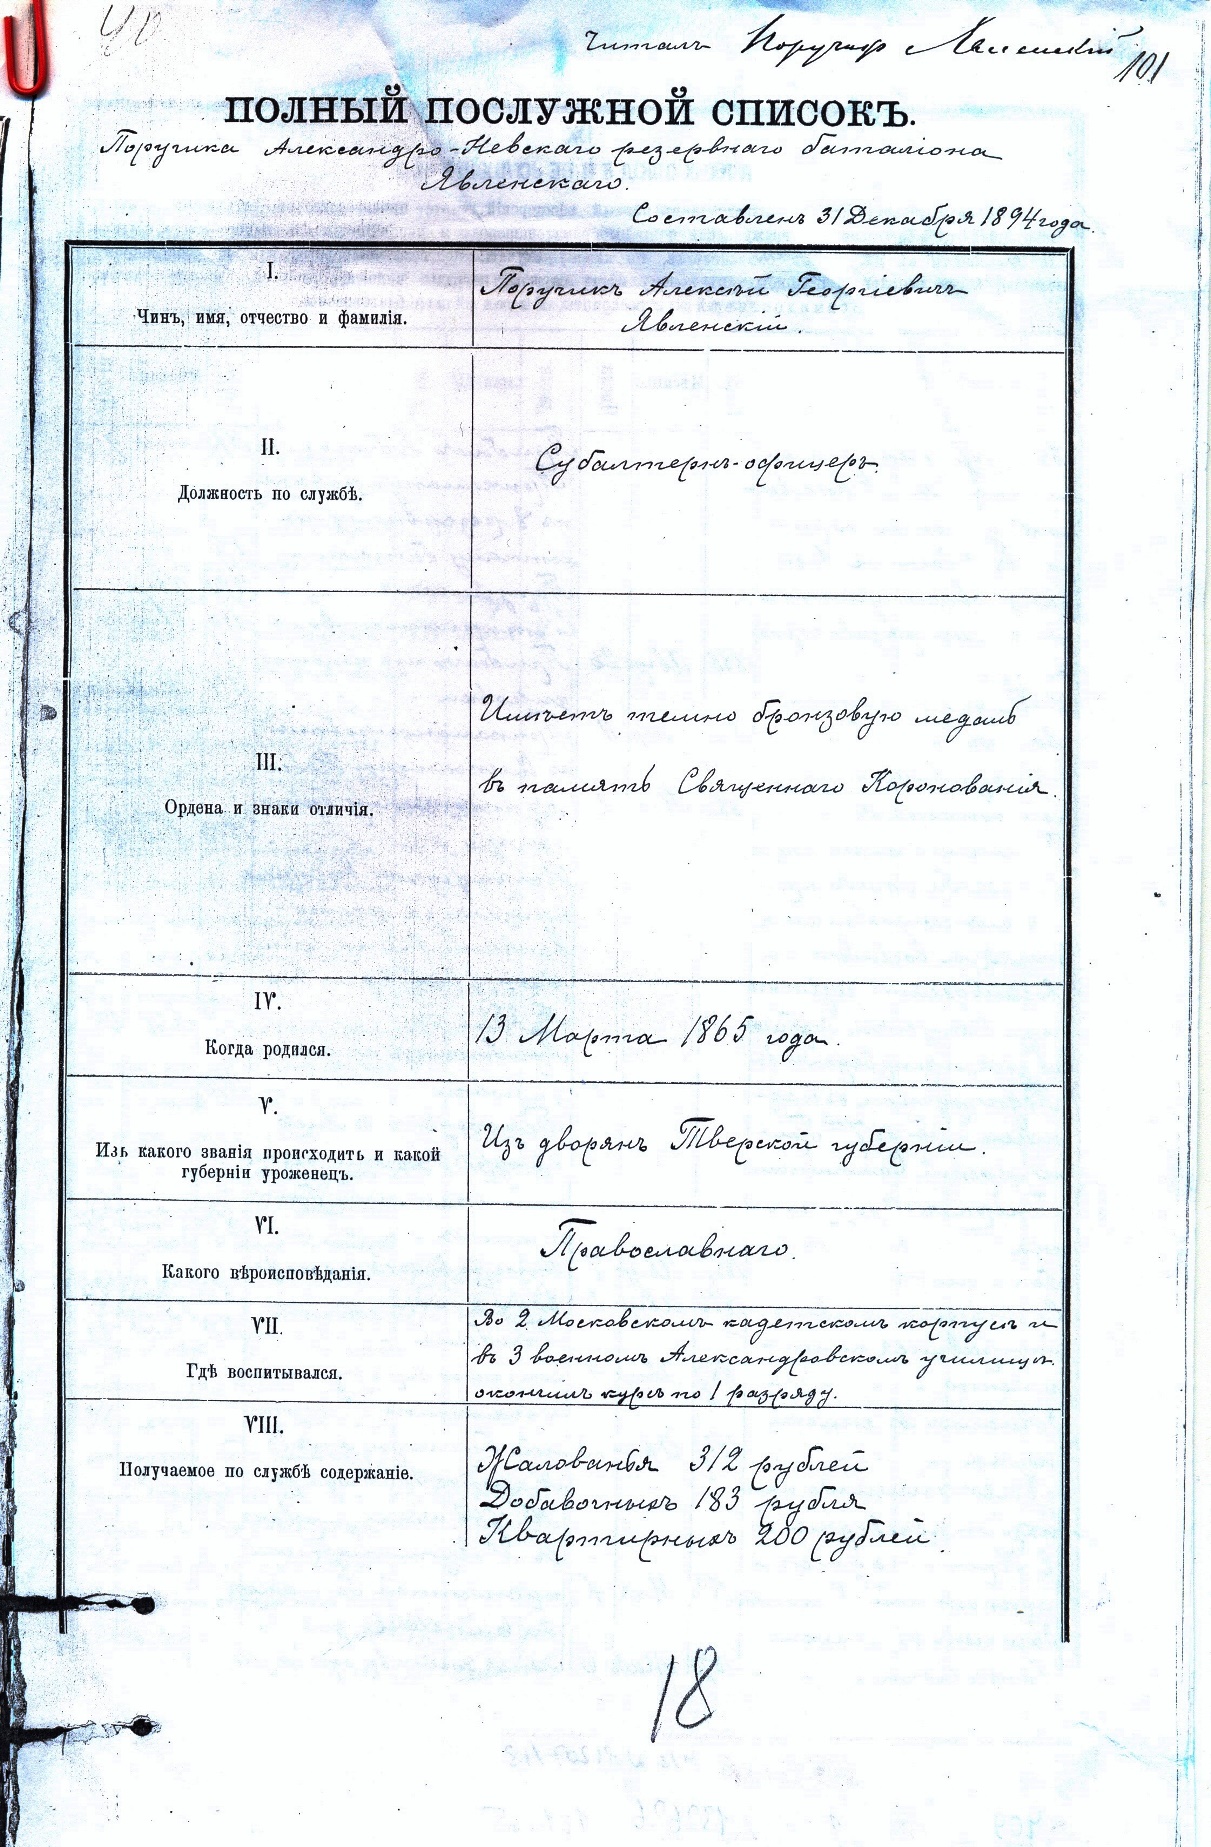 40
Читалъ Поручикъ Явленскій
101
ПОЛНЫЙ ПОСЛУЖНОЙ СПИСОКЪ.
Поручика Александро-Невскаго резервнаго баталіона
Явленскаго.
Составленъ 31 Декабря 1894 года.
I.
Чинъ, имя, отчество и фамилія.
Поручикъ Алексѣй Георгіевичъ
Явленскій.
II.
Должность по службѣ.
Субалтернъ-офицеръ.
III.
Ордена и знаки отличія.
Имѣетъ темно бронзовую медаль
въ память Священнаго Коронованія.
IV.
Когда родился.
13 Марта 1865 года.
V.
Изъ какого званія происходитъ и какой
губерніи уроженецъ.
Изъ дворянъ Тверской губерніи.
VI.
Какого вѣроисповѣданія.
Православнаго.
VII.
Гдѣ воспитывался.
Во 2 Московскомъ кадетскомъ корпусѣ и
въ 3 военномъ Александровскомъ училищѣ.
окончилъ курсъ по 1 разряду.
VIII.
Получаемое по службѣ содержаніе.
Жалованья 312 рублей
Добавочныхъ 183 рубля
Квартирныхъ 200 рублей.
18